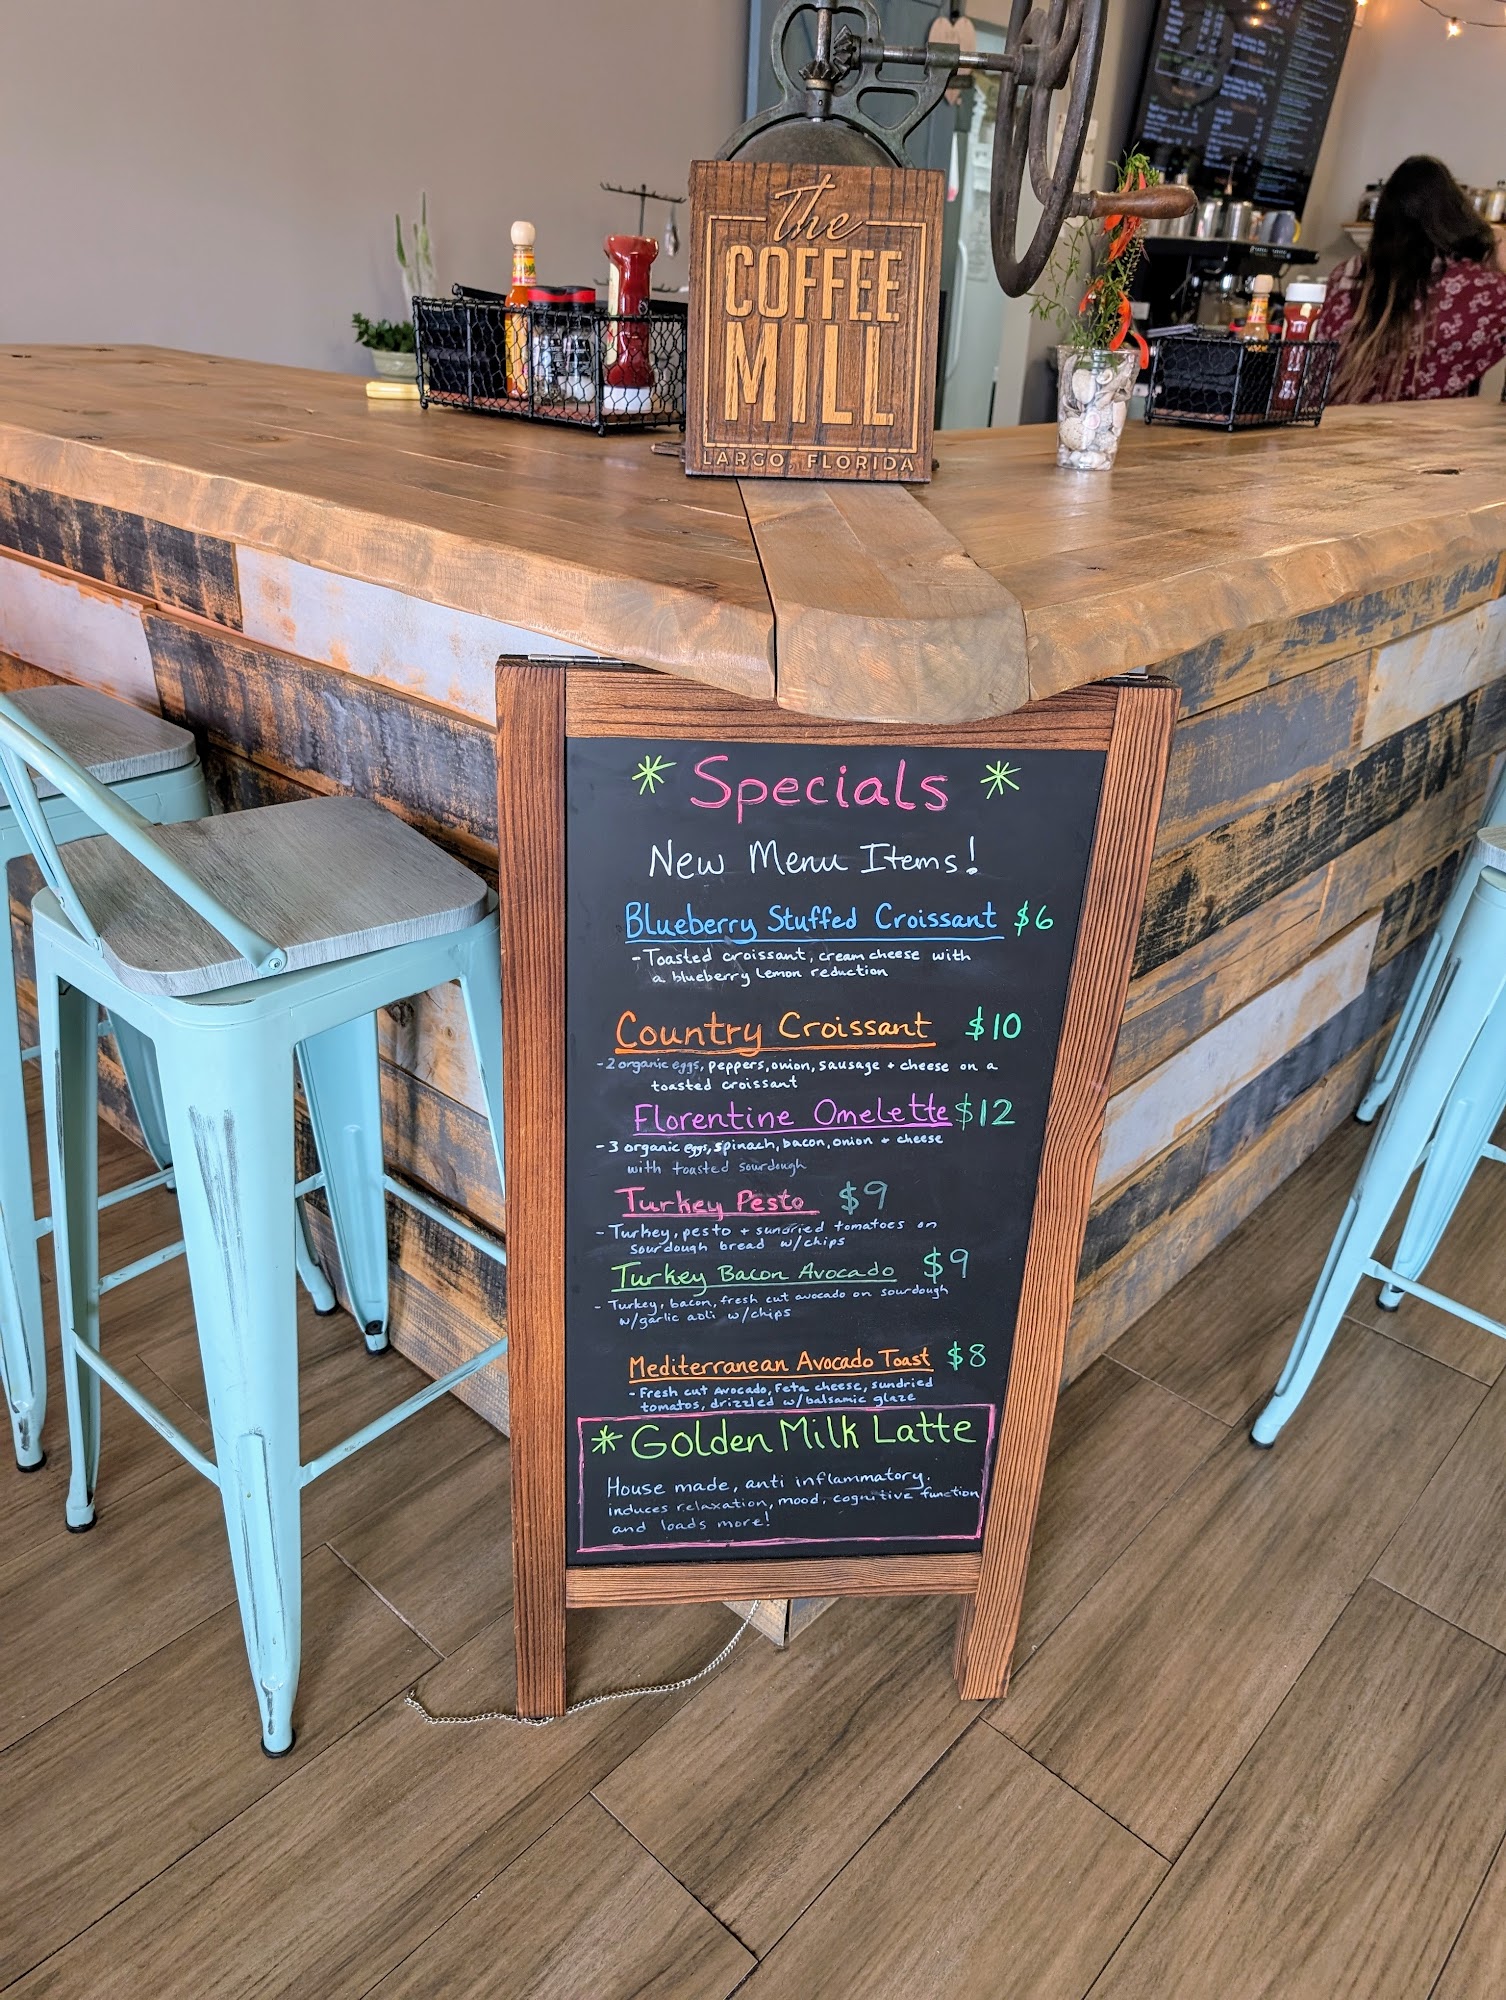 The
COFFEE
MILL
LARGO, FLORIDA
* Specials *
New Menu Items!
Blueberry Stuffed Croissant $6
- Toasted croissant, cream cheese with
a blueberry lemon reduction
Country Croissant $10
- 2 organic eggs, peppers, onion, sausage + cheese on a
toasted croissant
Florentine Omelette $12
- 3 organic eggs, spinach, bacon, onion + cheese
with toasted sourdough
Turkey Pesto $9
- Turkey, pesto + sundried tomatoes on
sourdough bread w/chips
Turkey Bacon Avocado $9
- Turkey, bacon, fresh cut avocado on sourdough
w/garlic aoli w/chips
Mediterranean Avocado Toast $8
- Fresh cut Avocado, Feta cheese, sundried
tomatos, drizzled w/balsamic glaze
* Golden Milk Latte
House made, anti inflammatory.
induces relaxation, mood, cognitive function
and loads more!